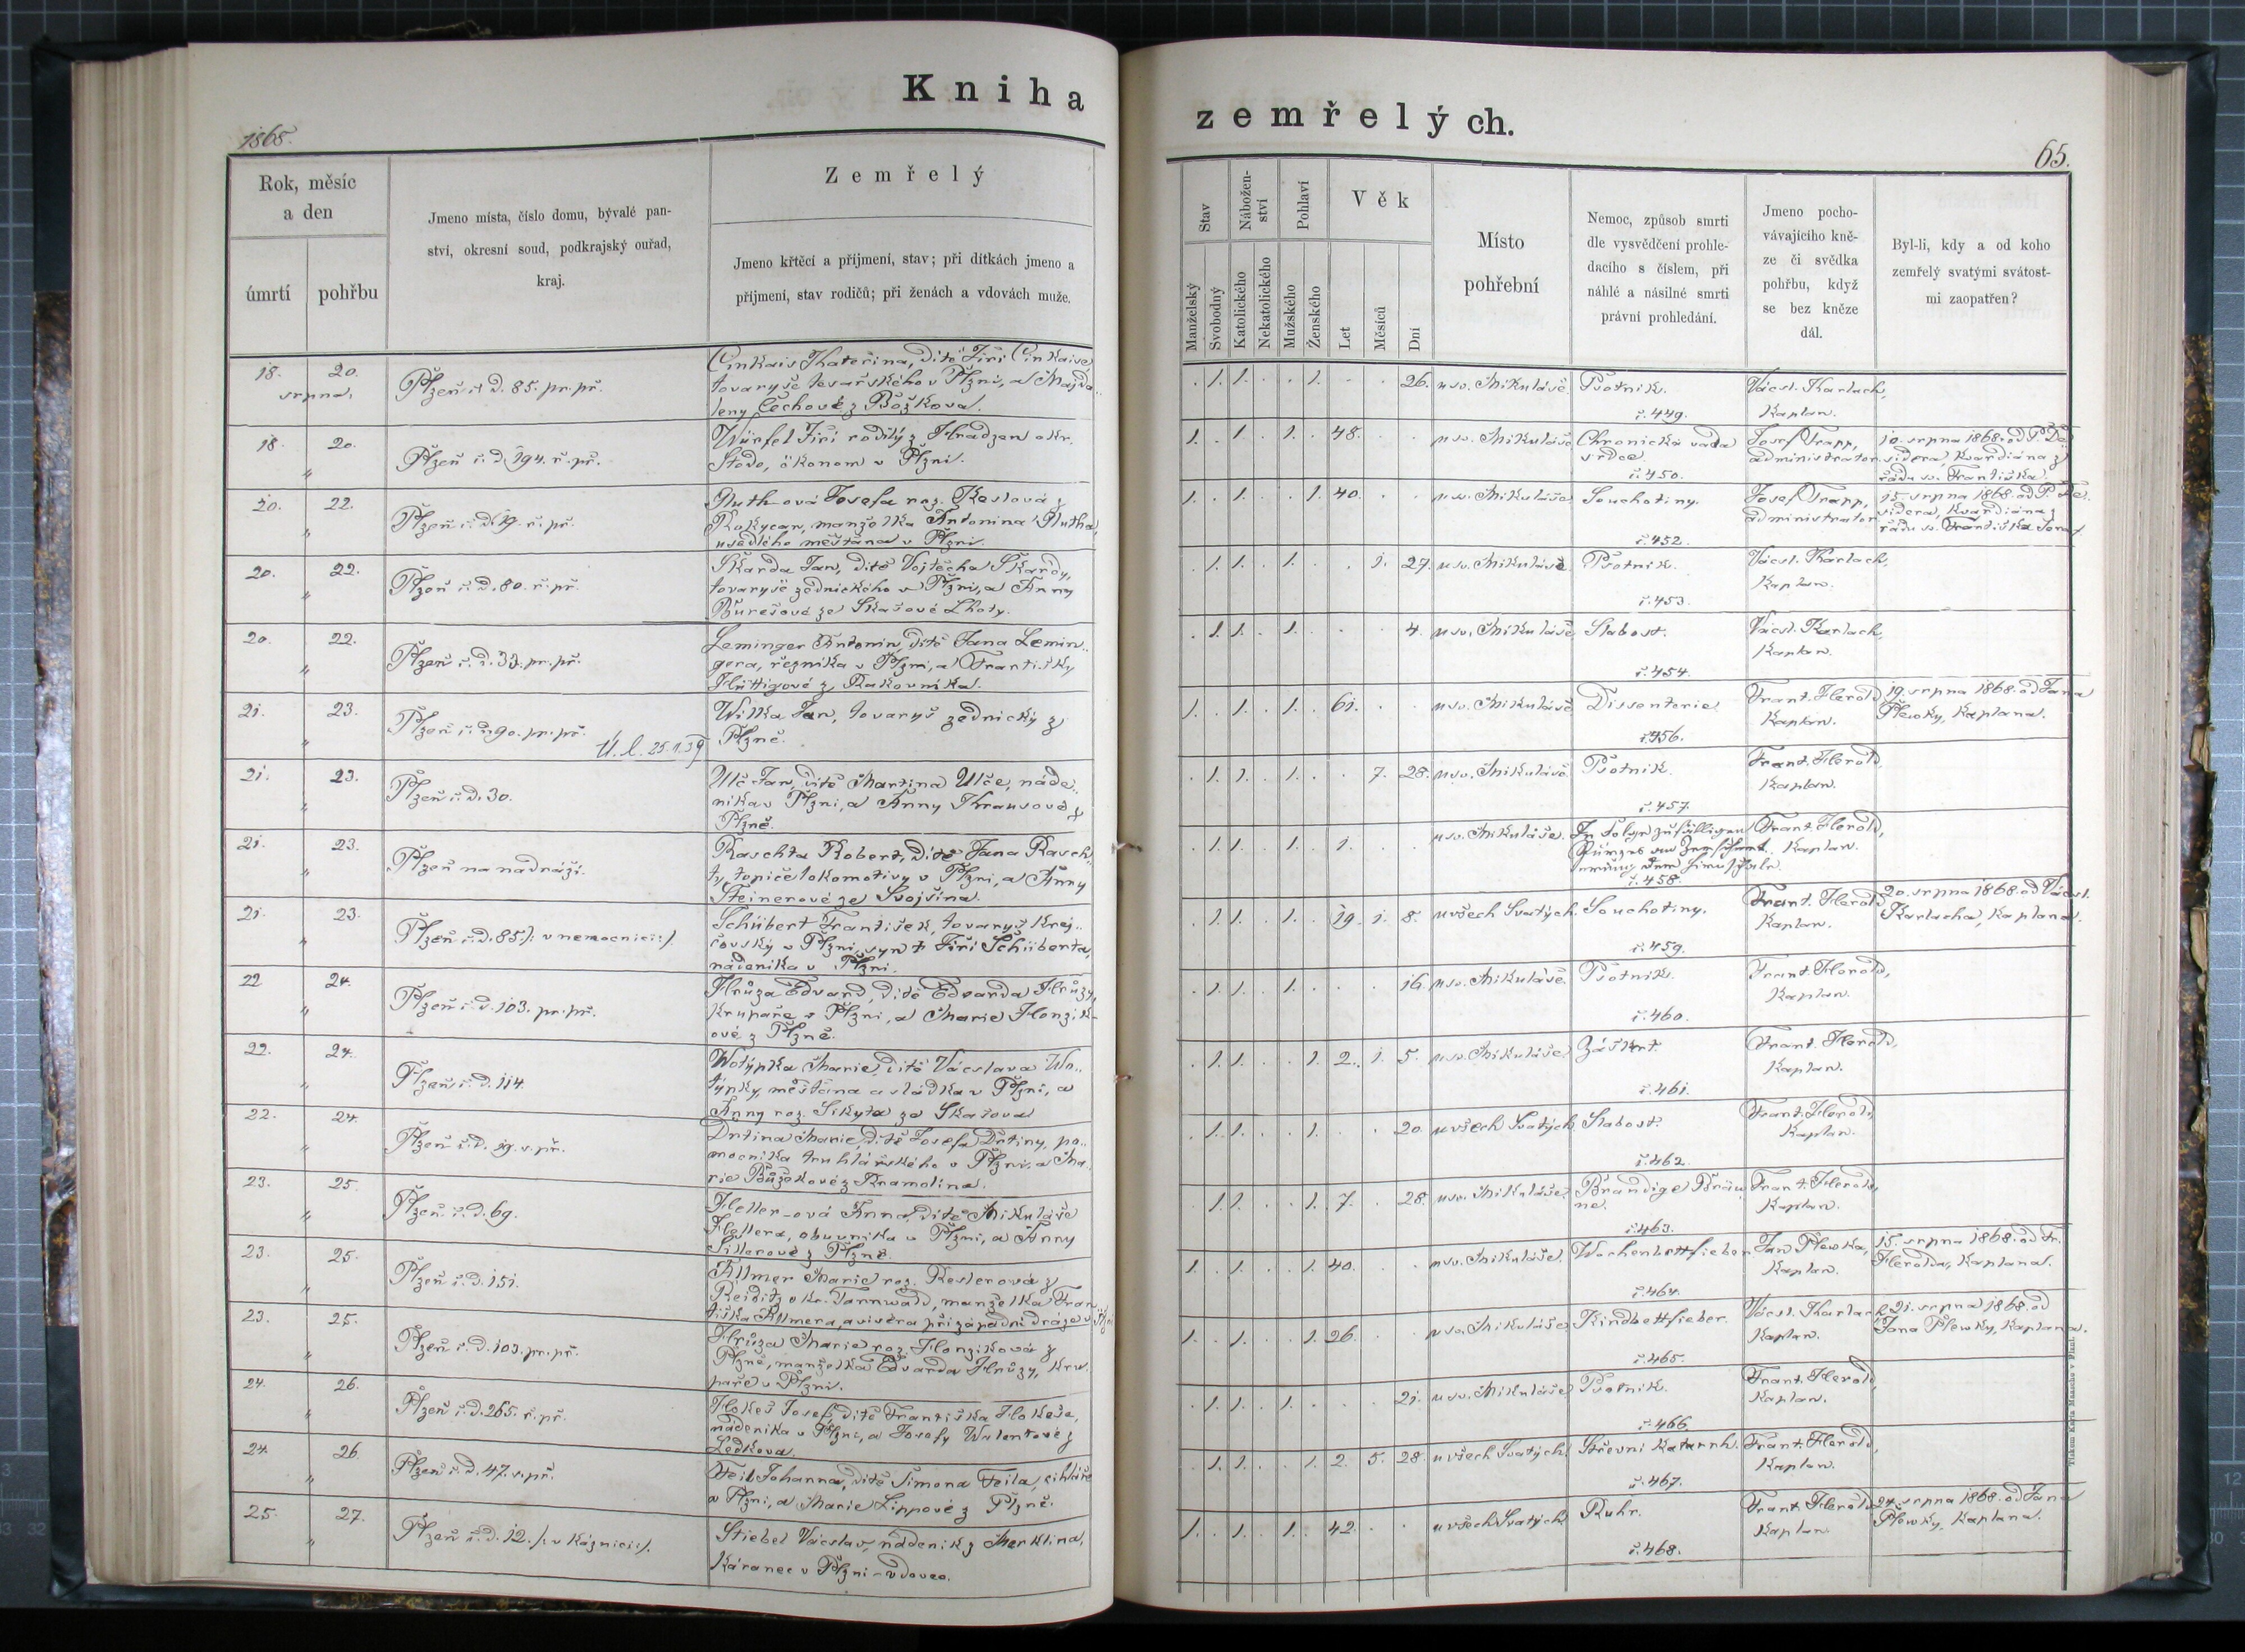 Kniha
zemřelých.
1868.
65.
Rok, měsíc
a den
úmrtí
pohřbu
Jmeno místa, číslo domu, bývalé pan-
ství, okresní soud, podkrajský ouřad,
kraj.
Zemřelý
Jmeno křtěcí a příjmení, stav; při dítkách jmeno a
příjmení, stav rodičů; při ženách a vdovách muže.
Stav
Manželský
Svobodný
Nábožen-
ství
Katolického
Nekatolického
Pohlaví
Mužského
Ženského
Věk
Let
Měsíců
Dní
Místo
pohřební
Nemoc, způsob smrti
dle vysvědčení prohle-
dacího s číslem, při
náhlé a násilné smrti
právní prohledání.
Jmeno pocho-
vávajícího kně-
ze či svědka
pohřbu, když
se bez kněze
dál.
Byl-li, kdy a od koho
zemřelý svatými svátost-
mi zaopatřen?
18. 20.
srpna,
Plzeň č. d. 85. pr. př.
Cinkais Kateřina, dítě Jiří Cinkaise
tovaryše tesařského v Plzni, a Majda-
leny Čechové z Božkova.
. 1. 1. . . 1. . . 26. u sv. Mikuláše. Psotník.
č. 449.
Václ. Karlach,
Kaplan.
18. 20.
"
Plzeň č. d. 194. ř. př.
Würfel Jiří rodilý z Hradzen okr.
Stodo, ökonom v Plzni.
1. . 1. . 1. . 48. . . u sv. Mikuláše Chronická vada
srdce.
č. 450.
Josef Trapp,
administrator.
10. srpna 1868. od P. De
sidera, kvardiána z
řádu sv. Františka.
20. 22.
"
Plzeň č. d. 19. ř. př.
Muth-ová Josefa roz. Keslová z
Rokycan, manželka Antonína Mutha,
usedlého měšťana v Plzni.
1. . 1. . . 1. 40. . . u sv. Mikuláše Souchotiny.
č. 452.
Josef Trapp,
administrator
15. srpna 1868. od P. De
sidera, kvardiána z
řádu sv. Františka Seraf.
20. 22.
"
Plzeň č. d. 80. ř. př.
Škarda Jan, dítě Vojtěcha Škardy,
tovaryše zednického v Plzni, a Anny
Burešové ze Skašové Lhoty.
. 1. 1. . 1. . . 1. 27. u sv. Mikuláše Psotník.
č. 453.
Václ. Karlach,
Kaplan.
20. 22.
"
Plzeň č. d. 33. pr. př.
Leminger Antonín, dítě Jana Lemin-
gera, řezníka v Plzni, a Františky
Hüttigové z Rakovníka.
. 1. 1. . 1. . . . 4. u sv. Mikuláše Slabost.
č. 454.
Václ. Karlach,
Kaplan.
21. 23.
"
Plzeň č. d. 90. pr. př.
Ú. l. 25.1.39
Wilka Jan, tovaryš zednický z
Plzně.
1. . 1. . 1. . 61. . . u sv. Mikuláše Dissenterie
č. 456.
Frant. Herold,
Kaplan.
19. srpna 1868. od Jana
Plewky, Kaplana.
21. 23.
"
Plzeň č. d. 30.
Ulč Jan, dítě Martina Ulče, náde-
níka v Plzni, a Anny Krausové z
Plzně.
. 1. 1. . 1. . . 7. 28. u sv. Mikuláše. Psotník.
č. 457.
Frant. Herold,
Kaplan.
21. 23.
"
Plzeň na nádraží.
Raschta Robert, dítě Jana Rasch-
ty, topiče lokomotivy v Plzni, a Anny
Steinerové ze Svojšína.
. 1. 1. . 1. . 1. . . u sv. Mikuláše. In Folge zufälligen
č. 458.
Frant. Herold,
Kaplan.
21. 23.
"
Plzeň č. d. 85 /: v nemocnici :/.
Schübert František, tovaryš krej-
čovský v Plzni, syn † Jiří Schüberta,
nádeníka v Plzni.
. 1. 1. . 1. . 19. 1. 8. u všech Svatých. Souchotiny.
č. 459.
Frant. Herold
Kaplan.
20. srpna 1868. od Václ.
Karlacha, Kaplana.
22 24.
"
Plzeň č. d. 103. pr. př.
Hrůza Edvard, dítě Edvarda Hrůzy,
krupaře v Plzni, a Marie Honzík-
ové z Plzně.
. 1. 1. . 1. . . . 16. u sv. Mikuláše. Psotník.
č. 460.
Frant. Herold,
Kaplan.
22. 24.
"
Plzeň č. d. 114.
Wotýpka Marie, dítě Václava Wo-
týpky, měšťana a sládka v Plzni, a
Anny roz. Sikyta ze Skašova
. 1. 1. . . 1. 2. 1. 5. u sv. Mikuláše Záškrt.
č. 461.
Frant. Herold,
Kaplan.
22. 24.
"
Plzeň č. d. 19. s. př.
Drtina Marie, dítě Josefa Drtiny, po-
mocníka truhlářského v Plzni, a Ma-
rie Bůžkové z Kramolína.
. 1. 1. . . 1. . . 20. u všech Svatých. Slabost.
č. 462.
Frant. Herold,
Kaplan.
23. 25.
"
Plzeň č. d. 69.
Heller-ová Anna, dítě Mikuláše
Hellera, obuvníka v Plzni, a Anny
Sillerové z Plzně.
. 1. 1. . . 1. 7. . 28. u sv. Mikuláše Brandige Bräu
ne.
č. 463.
Frant. Herold,
Kaplan.
23. 25.
"
Plzeň č. d. 151.
Allmer Marie roz. Keslerová z
Reiditz okr. Tannwald, manželka Fran-
tiška Allmera, aviséra při západní dráze v Plzni
1. . 1. . . 1. 40. . . u sv. Mikuláše. Wochenbettfieber
č. 464.
Jan Plewka,
Kaplan.
15. srpna 1868. od Fr.
Herolda, Kaplana.
23. 25.
"
Plzeň č. d. 103. pr. př.
Hrůza Marie roz. Honzíková z
Plzně, manželka Edvarda Hrůzy, kru-
paře v Plzni.
1. . 1. . . 1. 26. . . u sv. Mikuláše Kindbettfieber.
č. 465.
Václ. Karlach
Kaplan.
21. srpna 1868. od
Jana Plewky, Kaplana.
24. 26.
"
Plzeň č. d. 265. ř. př.
Hokeš Josef, dítě Františka Hokeše,
nádeníka v Plzni, a Josefy Walentové z
Ledkova.
. 1. 1. . 1. . . . 21. u sv. Mikuláše Psotník.
č. 466.
Frant. Herold,
Kaplan.
24. 26.
"
Plzeň č. d. 47. s. př.
Feil Johanna, dítě Šimona Feila, cihláře
v Plzni, a Marie Lippové z Plzně.
. 1. 1. . . 1. 2. 5. 28. u všech Svatých. Střevní Katarrh.
č. 467.
Frant. Herold,
Kaplan.
25. 27.
"
Plzeň č. d. 12. /: v káznici :/.
Stiebel Václav, nádeník z Merklína,
káranec v Plzni - vdovec.
1. . 1. . 1. . 42. . . u všech Svatých Ruhr.
č. 468.
Frant. Herold
Kaplan.
24. srpna 1868. od Jana
Plewky, Kaplana.
Tiskem Karla Maasche v Plzni.